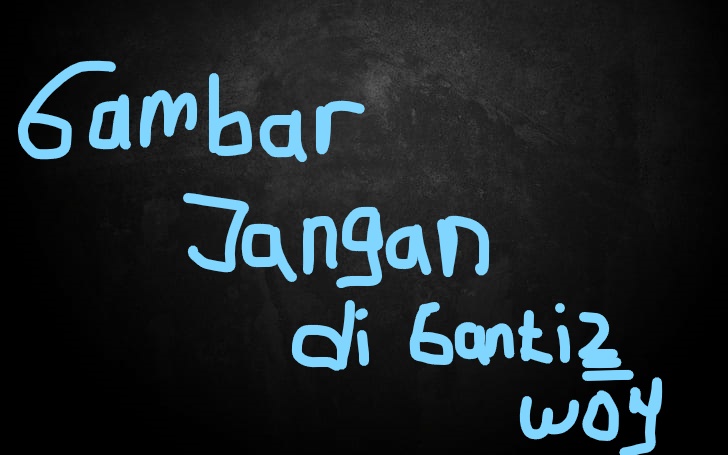 Gambar
Jangan
di Ganti2
woy